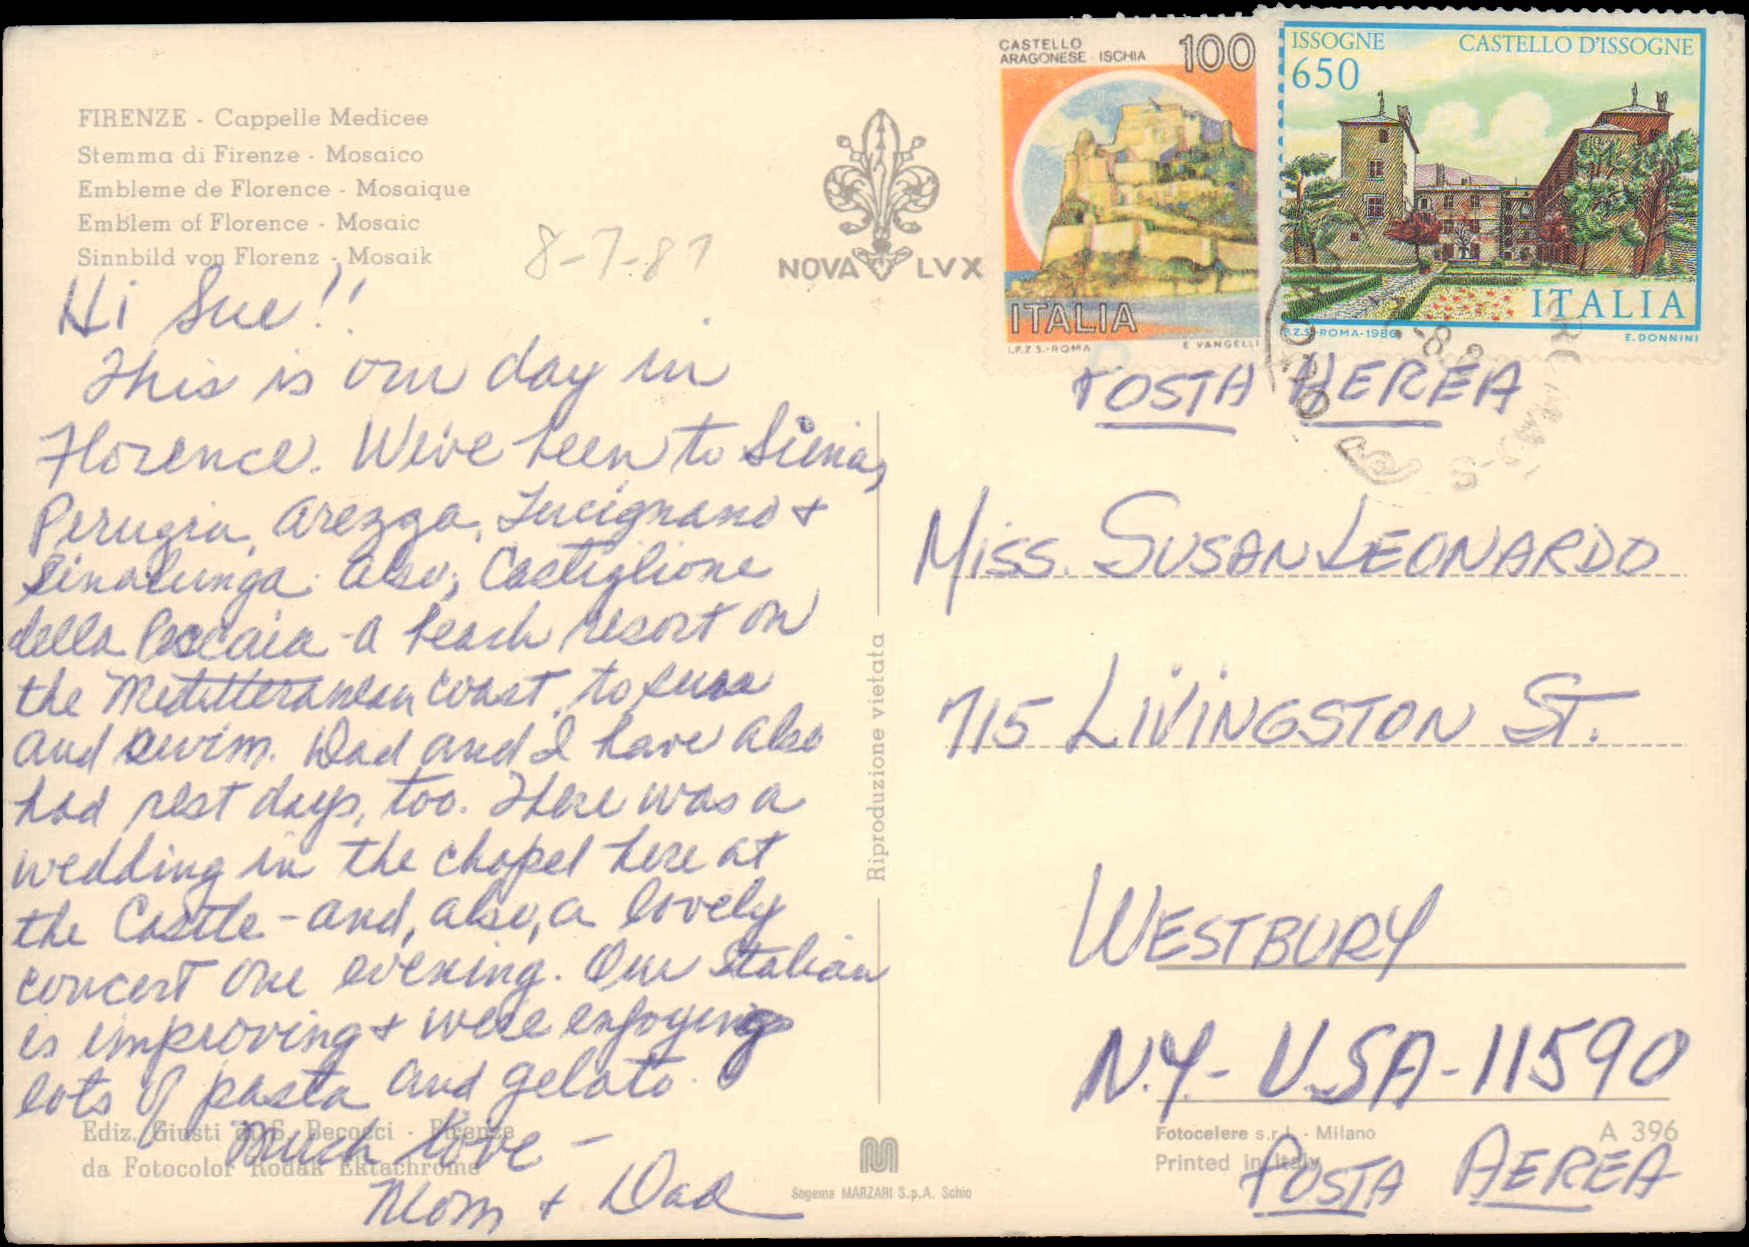 FIRENZE - Cappelle Medicee
Stemma di Firenze - Mosaico
Embleme de Florence - Mosaique
Emblem of Florence - Mosaic
Sinnbild von Florenz - Mosaik
8-7-87
NOVA LVX
CASTELLO
ARAGONESE - ISCHIA 100
ITALIA
I.P.Z.S.-ROMA E VANGELLI
ISSOGNE CASTELLO D'ISSOGNE
650
ITALIA
I.P.Z.S.-ROMA-1986 E. DONNINI
Hi Sue!!
This is our day in
Florence. We've been to Siena,
Perugia, Arezzo, Lucignano +
Sinalunga. Also, Castiglione
della Pescaia - a beach resort on
the Meditteranean coast, to sun
and swim. Dad and I have also
had rest days, too. There was a
wedding in the chapel here at
the Castle - and, also, a lovely
concert one evening. Our Italian
is improving + we're enjoying
lots of pasta and gelato.
Much love -
Mom + Dad
Ediz. Giusti di S. Becocci - Firenze
da Fotocolor Kodak Ektachrome
Riproduzione vietata
Sagema MARZARI S.p.A. Schio
POSTA AEREA
MISS. SUSAN LEONARDO
715 LIVINGSTON ST.
WESTBURY
N.Y. - USA - 11590
Fotocelere s.r.l. - Milano A 396
Printed in Italy
POSTA AEREA